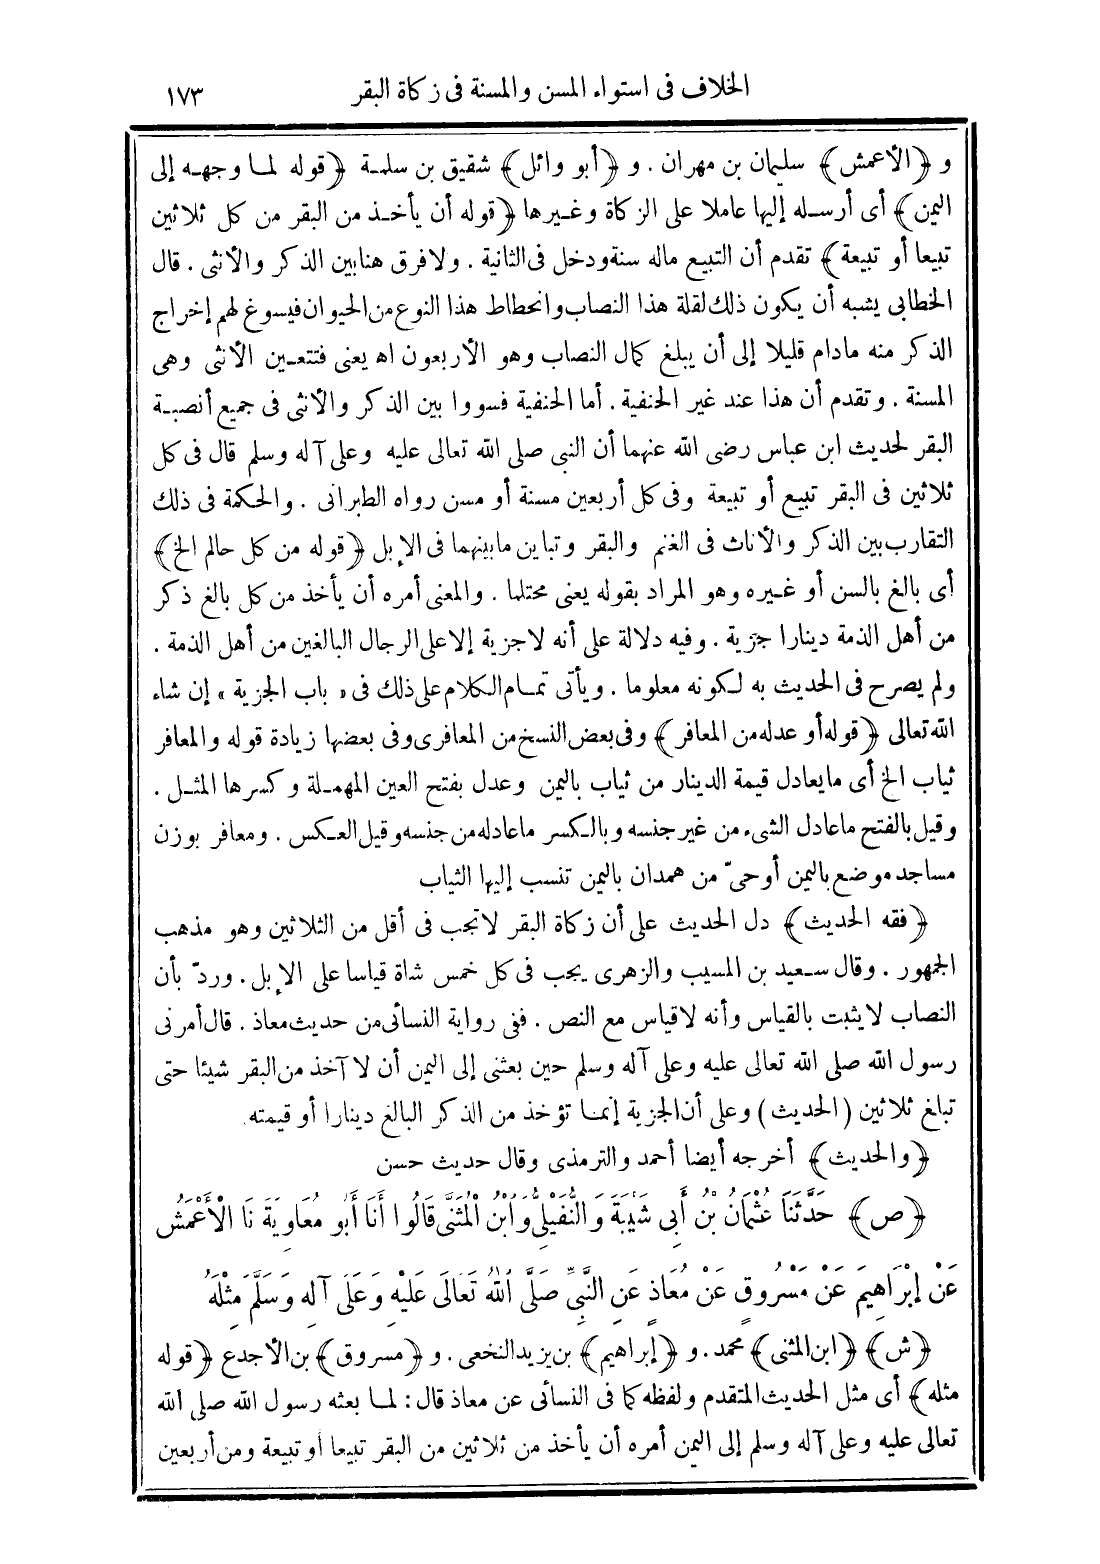 الخلاف فى استواء المسن والمسنة فى زكاة البقر ١٧٣
و ﴿الأعمش﴾ سليمان بن مهران . و ﴿أبو وائل﴾ شقيق بن سلمة ﴿قوله لما وجهه إلى
اليمن﴾ أى أرسله إليها عاملا على الزكاة وغيرها ﴿قوله أن يأخذ من البقر من كل ثلاثين
تبيعا أو تبيعة﴾ تقدم أن التبيع ماله سنة ودخل فى الثانية . ولا فرق هنا بين الذكر والأنثى . قال
الخطابى يشبه أن يكون ذلك لقلة هذا النصاب وانحطاط هذا النوع من الحيوان فيسوغ لهم إخراج
الذكر منه مادام قليلا إلى أن يبلغ كمال النصاب وهو الأربعون اه يعنى فتتعين الأنثى وهى
المسنة . وتقدم أن هذا عند غير الحنفية . أما الحنفية فسووا بين الذكر والأنثى فى جميع أنصبة
البقر لحديث ابن عباس رضى الله عنهما أن النبى صلى الله تعالى عليه وعلى آله وسلم قال فى كل
ثلاثين فى البقر تبيع أو تبيعة وفى كل أربعين مسنة أو مسن رواه الطبرانى . والحكمة فى ذلك
التقارب بين الذكر والأناث فى الغنم والبقر وتباين ما بينهما فى الإبل ﴿قوله من كل حالم الخ﴾
أى بالغ بالسن أو غيره وهو المراد بقوله يعنى محتلما . والمعنى أمره أن يأخذ من كل بالغ ذكر
من أهل الذمة دينارا جزية . وفيه دلالة على أنه لا جزية إلا على الرجال البالغين من أهل الذمة .
ولم يصرح فى الحديث به لكونه معلوما . ويأتى تمام الكلام على ذلك فى «باب الجزية» إن شاء
الله تعالى ﴿قوله أو عدله من المعافر﴾ وفى بعض النسخ من المعافرى وفى بعضها زيادة قوله والمعافر
ثياب الخ أى ما يعادل قيمة الدينار من ثياب باليمن وعدل بفتح العين المهملة وكسرها المثل .
وقيل بالفتح ما عادل الشىء من غير جنسه وبالكسر ما عادله من جنسه وقيل العكس . ومعافر بوزن
مساجد موضع باليمن أو حىّ من همدان باليمن تنسب إليها الثياب
﴿فقه الحديث﴾ دل الحديث على أن زكاة البقر لا تجب فى أقل من الثلاثين وهو مذهب
الجمهور . وقال سعيد بن المسيب والزهرى يجب فى كل خمس شاة قياسا على الإبل . وردّ بأن
النصاب لا يثبت بالقياس وأنه لا قياس مع النص . ففى رواية النسائى من حديث معاذ . قال أمرنى
رسول الله صلى الله تعالى عليه وعلى آله وسلم حين بعثنى إلى اليمن أن لا آخذ من البقر شيئا حتى
تبلغ ثلاثين (الحديث) وعلى أن الجزية إنما تؤخذ من الذكر البالغ دينارا أو قيمته .
﴿والحديث﴾ أخرجه أيضا أحمد والترمذى وقال حديث حسن
﴿ص﴾ حَدَّثَنَا عُثْمَانُ بْنُ أَبِى شَيْبَةَ وَالنُّفَيْلِىُّ وَابْنُ الْمُثَنَّى قَالُوا أَنَا أَبُو مُعَاوِيَةَ نَا الْأَعْمَشُ
عَنْ إِبْرَاهِيمَ عَنْ مَسْرُوقٍ عَنْ مُعَاذٍ عَنِ النَّبِىِّ صَلَّى اللهُ تَعَالَى عَلَيْهِ وَعَلَى آلِهِ وَسَلَّمَ مِثْلَهُ
﴿ش﴾ ﴿ابن المثنى﴾ محمد . و ﴿إبراهيم﴾ بن يزيد النخعى . و ﴿مسروق﴾ بن الأجدع ﴿قوله
مثله﴾ أى مثل الحديث المتقدم ولفظه كما فى النسائى عن معاذ قال : لما بعثه رسول الله صلى الله
تعالى عليه وعلى آله وسلم إلى اليمن أمره أن يأخذ من ثلاثين من البقر تبيعا أو تبيعة ومن أربعين